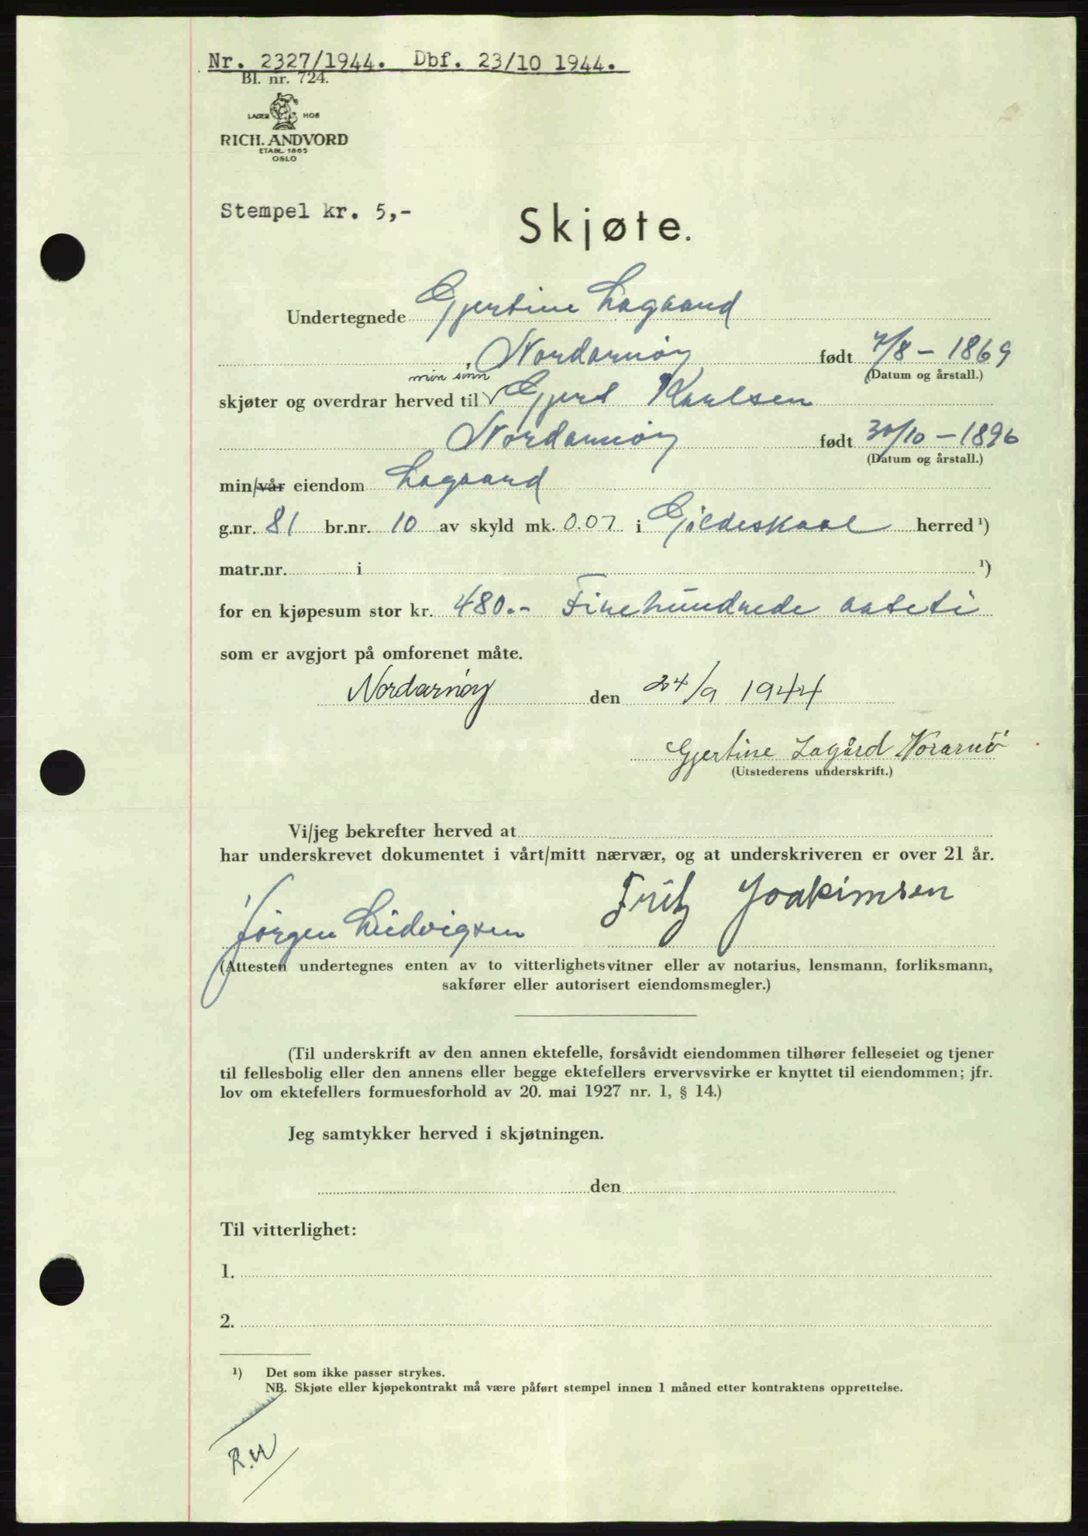 Nr. 2327/1944. Dbf. 23/10 1944.
Bl. nr. 724.
LAGER HOS
RICH. ANDVORD
ETABL. 1865
OSLO
Stempel kr. 5,-
Skjøte.
Undertegnede Gjertine Lagaard
Nordarnøy født 7/8 - 1869
(Datum og årstall.)
min sønn
skjøter og overdrar herved til Gjert Karlsen
Nordarnøy født 30/10 - 1896
(Datum og årstall.)
min/vår eiendom Lagaard
g.nr. 81 br.nr. 10 av skyld mk. 0.07 i Gildeskaal herred ¹)
matr.nr. i ¹)
for en kjøpesum stor kr. 480.- Firehundrede aateti
som er avgjort på omforenet måte.
Nordarnøy den 24/9 1944
Gjertine Lagård Norarnø
(Utstederens underskrift.)
Vi/jeg bekrefter herved at
har underskrevet dokumentet i vårt/mitt nærvær, og at underskriveren er over 21 år.
Jørgen Ludvigsen Fritz Joakimsen
(Attesten undertegnes enten av to vitterlighetsvitner eller av notarius, lensmann, forliksmann,
sakfører eller autorisert eiendomsmegler.)
(Til underskrift av den annen ektefelle, forsåvidt eiendommen tilhører felleseiet og tjener
til fellesbolig eller den annens eller begge ektefellers ervervsvirke er knyttet til eiendommen; jfr.
lov om ektefellers formuesforhold av 20. mai 1927 nr. 1, § 14.)
Jeg samtykker herved i skjøtningen.
den
Til vitterlighet:
1.
2.
¹) Det som ikke passer strykes.
NB. Skjøte eller kjøpekontrakt må være påført stempel innen 1 måned etter kontraktens opprettelse.